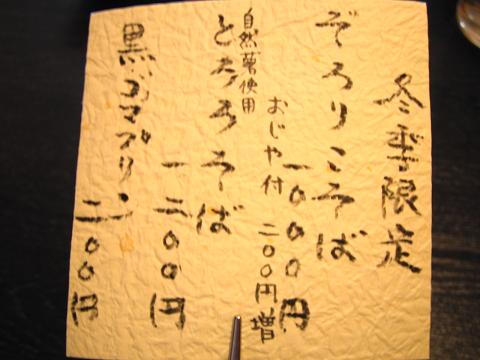 冬季限定
ぞろりこそば
一〇〇〇円
おじや付 二〇〇円増
自然薯使用
とろろそば
一二〇〇円
黒ゴマプリン
二〇〇円